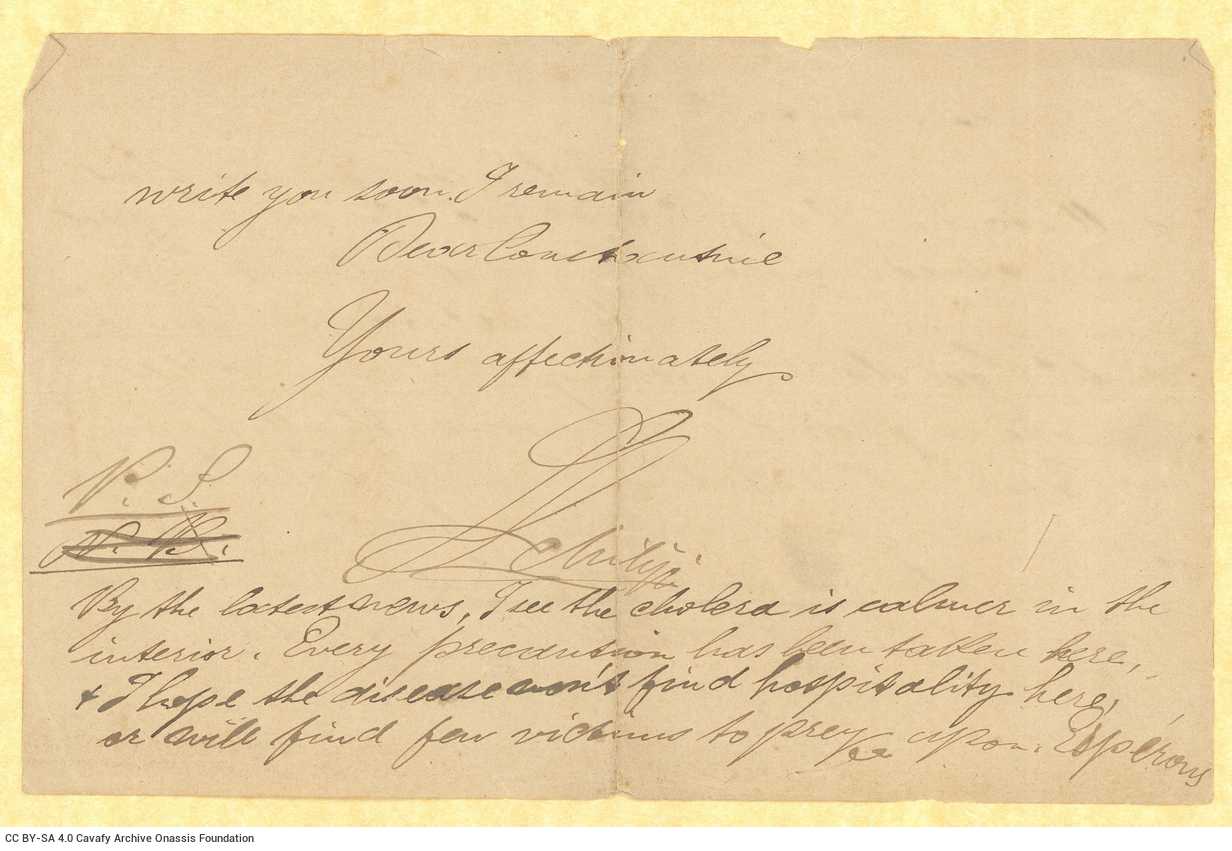 write you soon. I remain
Dear Constantine
Yours affectionately
Philip
P. S.
N. B.
By the latest news, I see the cholera is calmer in the
interior. Every precaution has been taken here,
& I hope the disease won't find hospitality here,
or will find few victims to prey upon. Espérons
CC BY-SA 4.0 Cavafy Archive Onassis Foundation